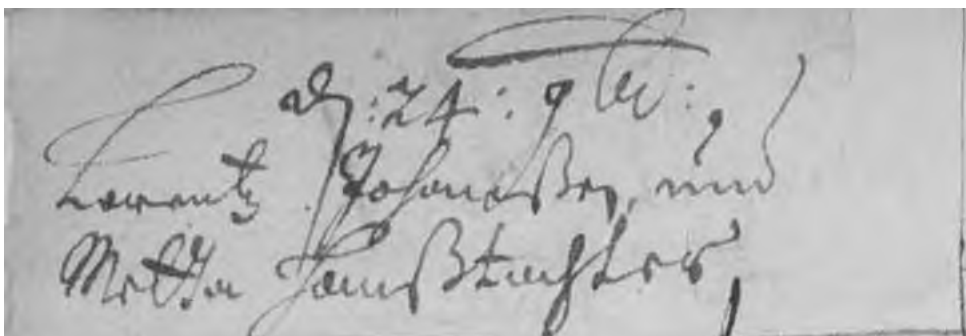 d. 24: 9br:
Lorentz Johanßen, und
Metta Hanßtochter,